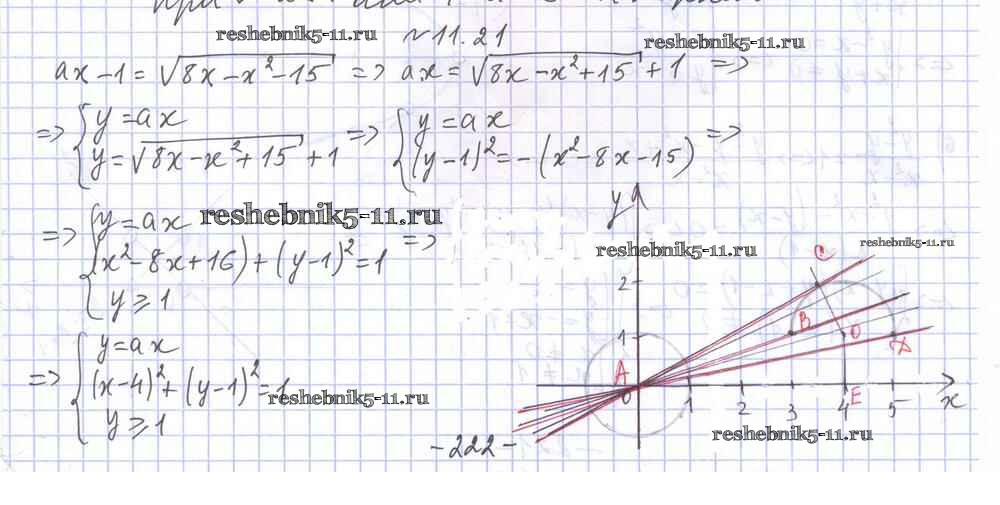 reshebnik5-11.ru
№11.21
reshebnik5-11.ru
ax-1=√(8x-x²-15) => ax=√(8x-x²+15)+1 =>
=> {y=ax
y=√(8x-x²+15)+1 => {y=ax
(y-1)²=-(x²-8x-15) =>
=> {y=ax
reshebnik5-11.ru
(x²-8x+16)+(y-1)²=1 =>
y≥1
=> {y=ax
(x-4)²+(y-1)²=1
y≥1
reshebnik5-11.ru
-222-
y
reshebnik5-11.ru
reshebnik5-11.ru
C
2
1
B
O
D
A
0
1
2
3
4
E
5
x
reshebnik5-11.ru